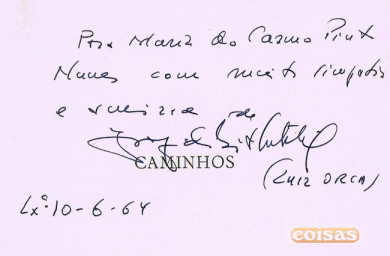 Para Maria do Carmo Pinto
Nunes com muita simpatia
e amizade de
CAMINHOS
(Luiz Orca)
Lxº 10-6-64
coisas